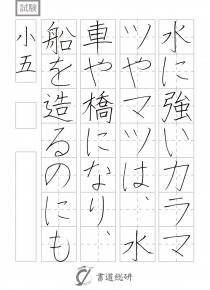 試験
水に強いカラマ
ツやマツは、水
車や橋になり、
船を造るのにも
小五
書道総研